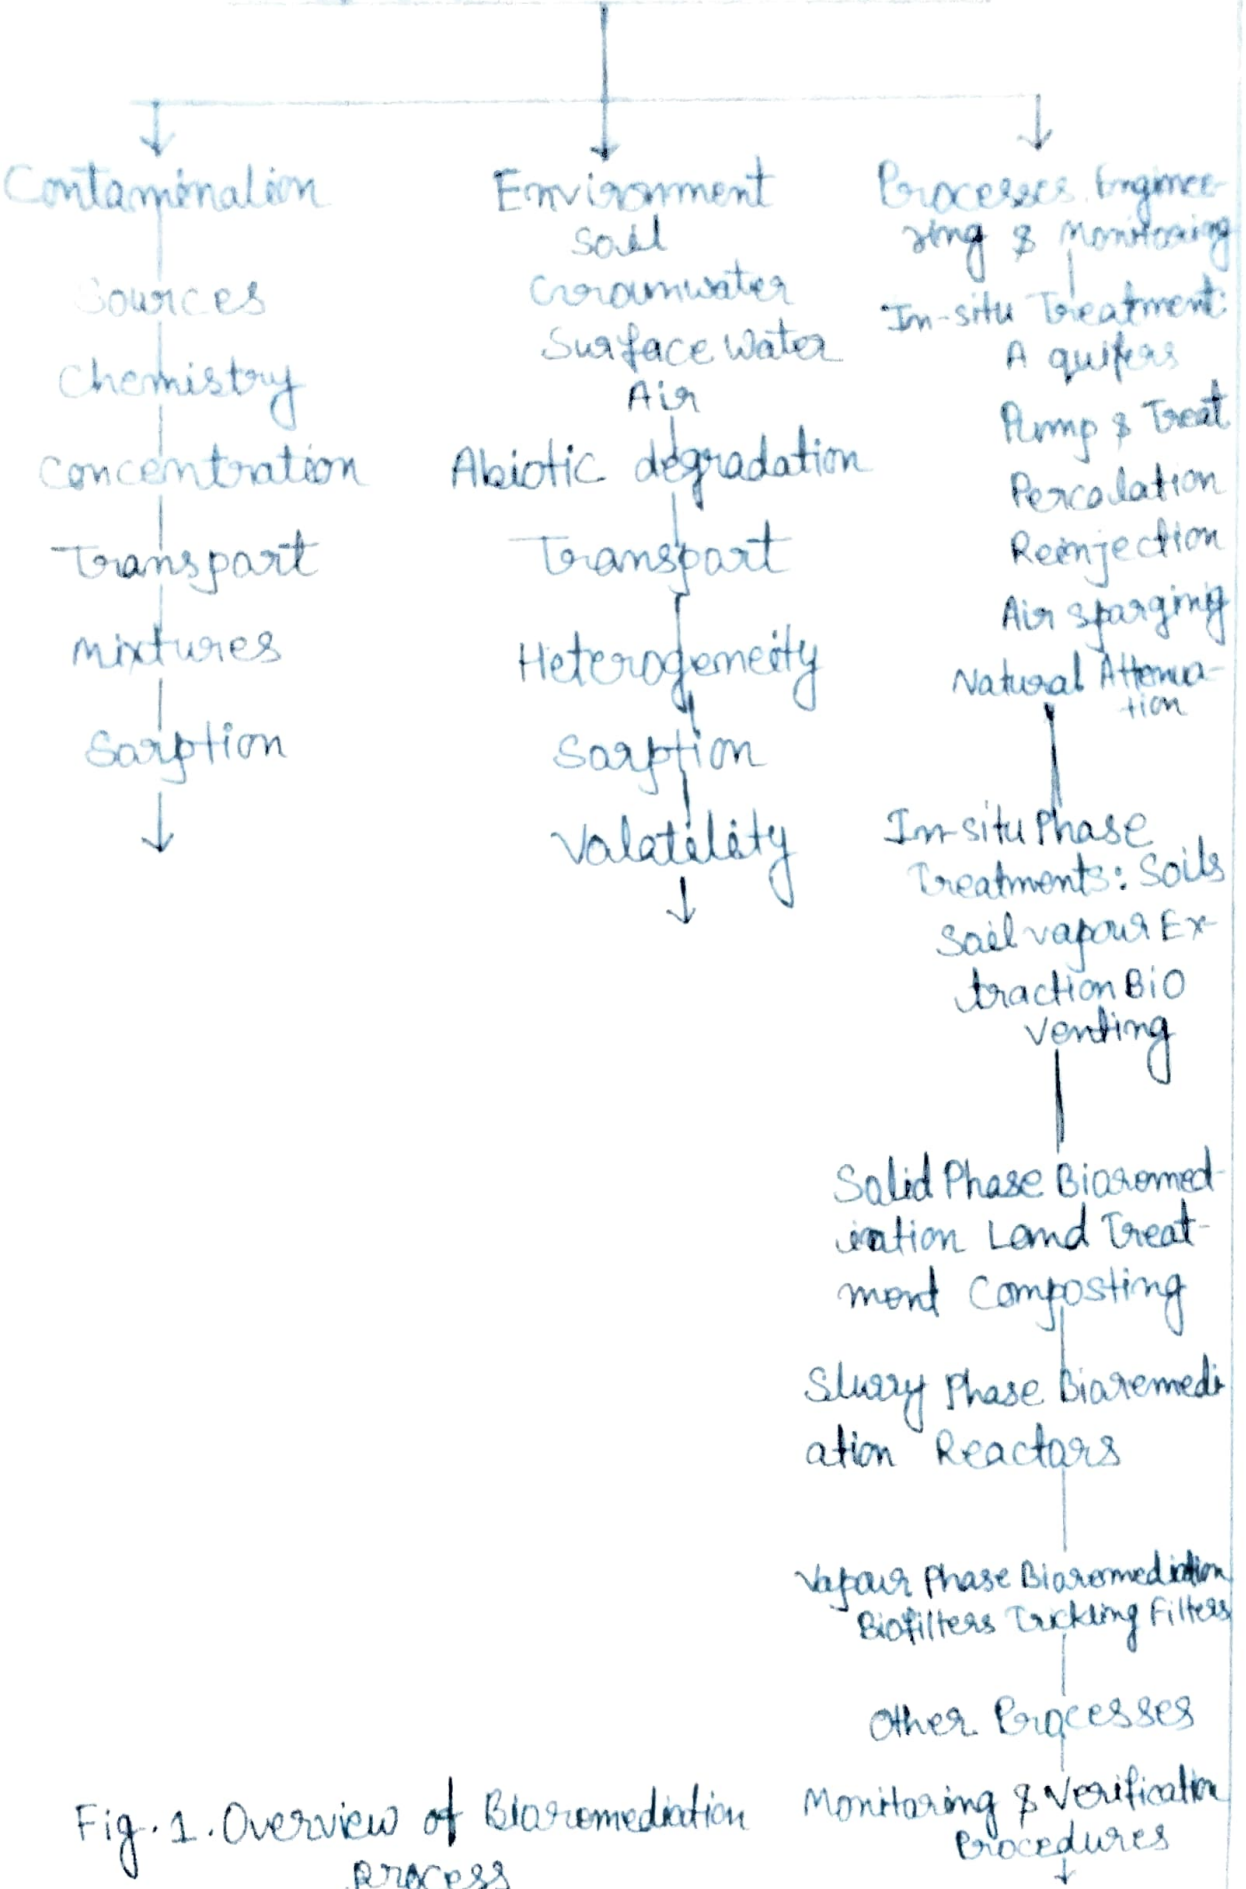 Contamination
Sources
Chemistry
Concentration
Transport
Mixtures
Sorption
Environment
Soil
Grounwater
Surface Water
Air
Abiotic degradation
Transport
Heterogeneity
Sorption
Volatility
Processes, Enginee-
ring & Monitoring
In-situ Treatment:
Aquifers
Pump & Treat
Percolation
Reinjection
Air sparging
Natural Attenua-
tion
In-situ Phase
Treatments: Soils
Soil vapour Ex-
traction Bio
venting
Solid Phase Bioremed-
iation Land Treat-
ment Composting
Slurry Phase Bioremedi
ation Reactors
Vapour Phase Bioremediation
Biofilters Trickling Filters
Other Processes
Monitoring & Verification
Procedures
Fig. 1. Overview of Bioremediation
process